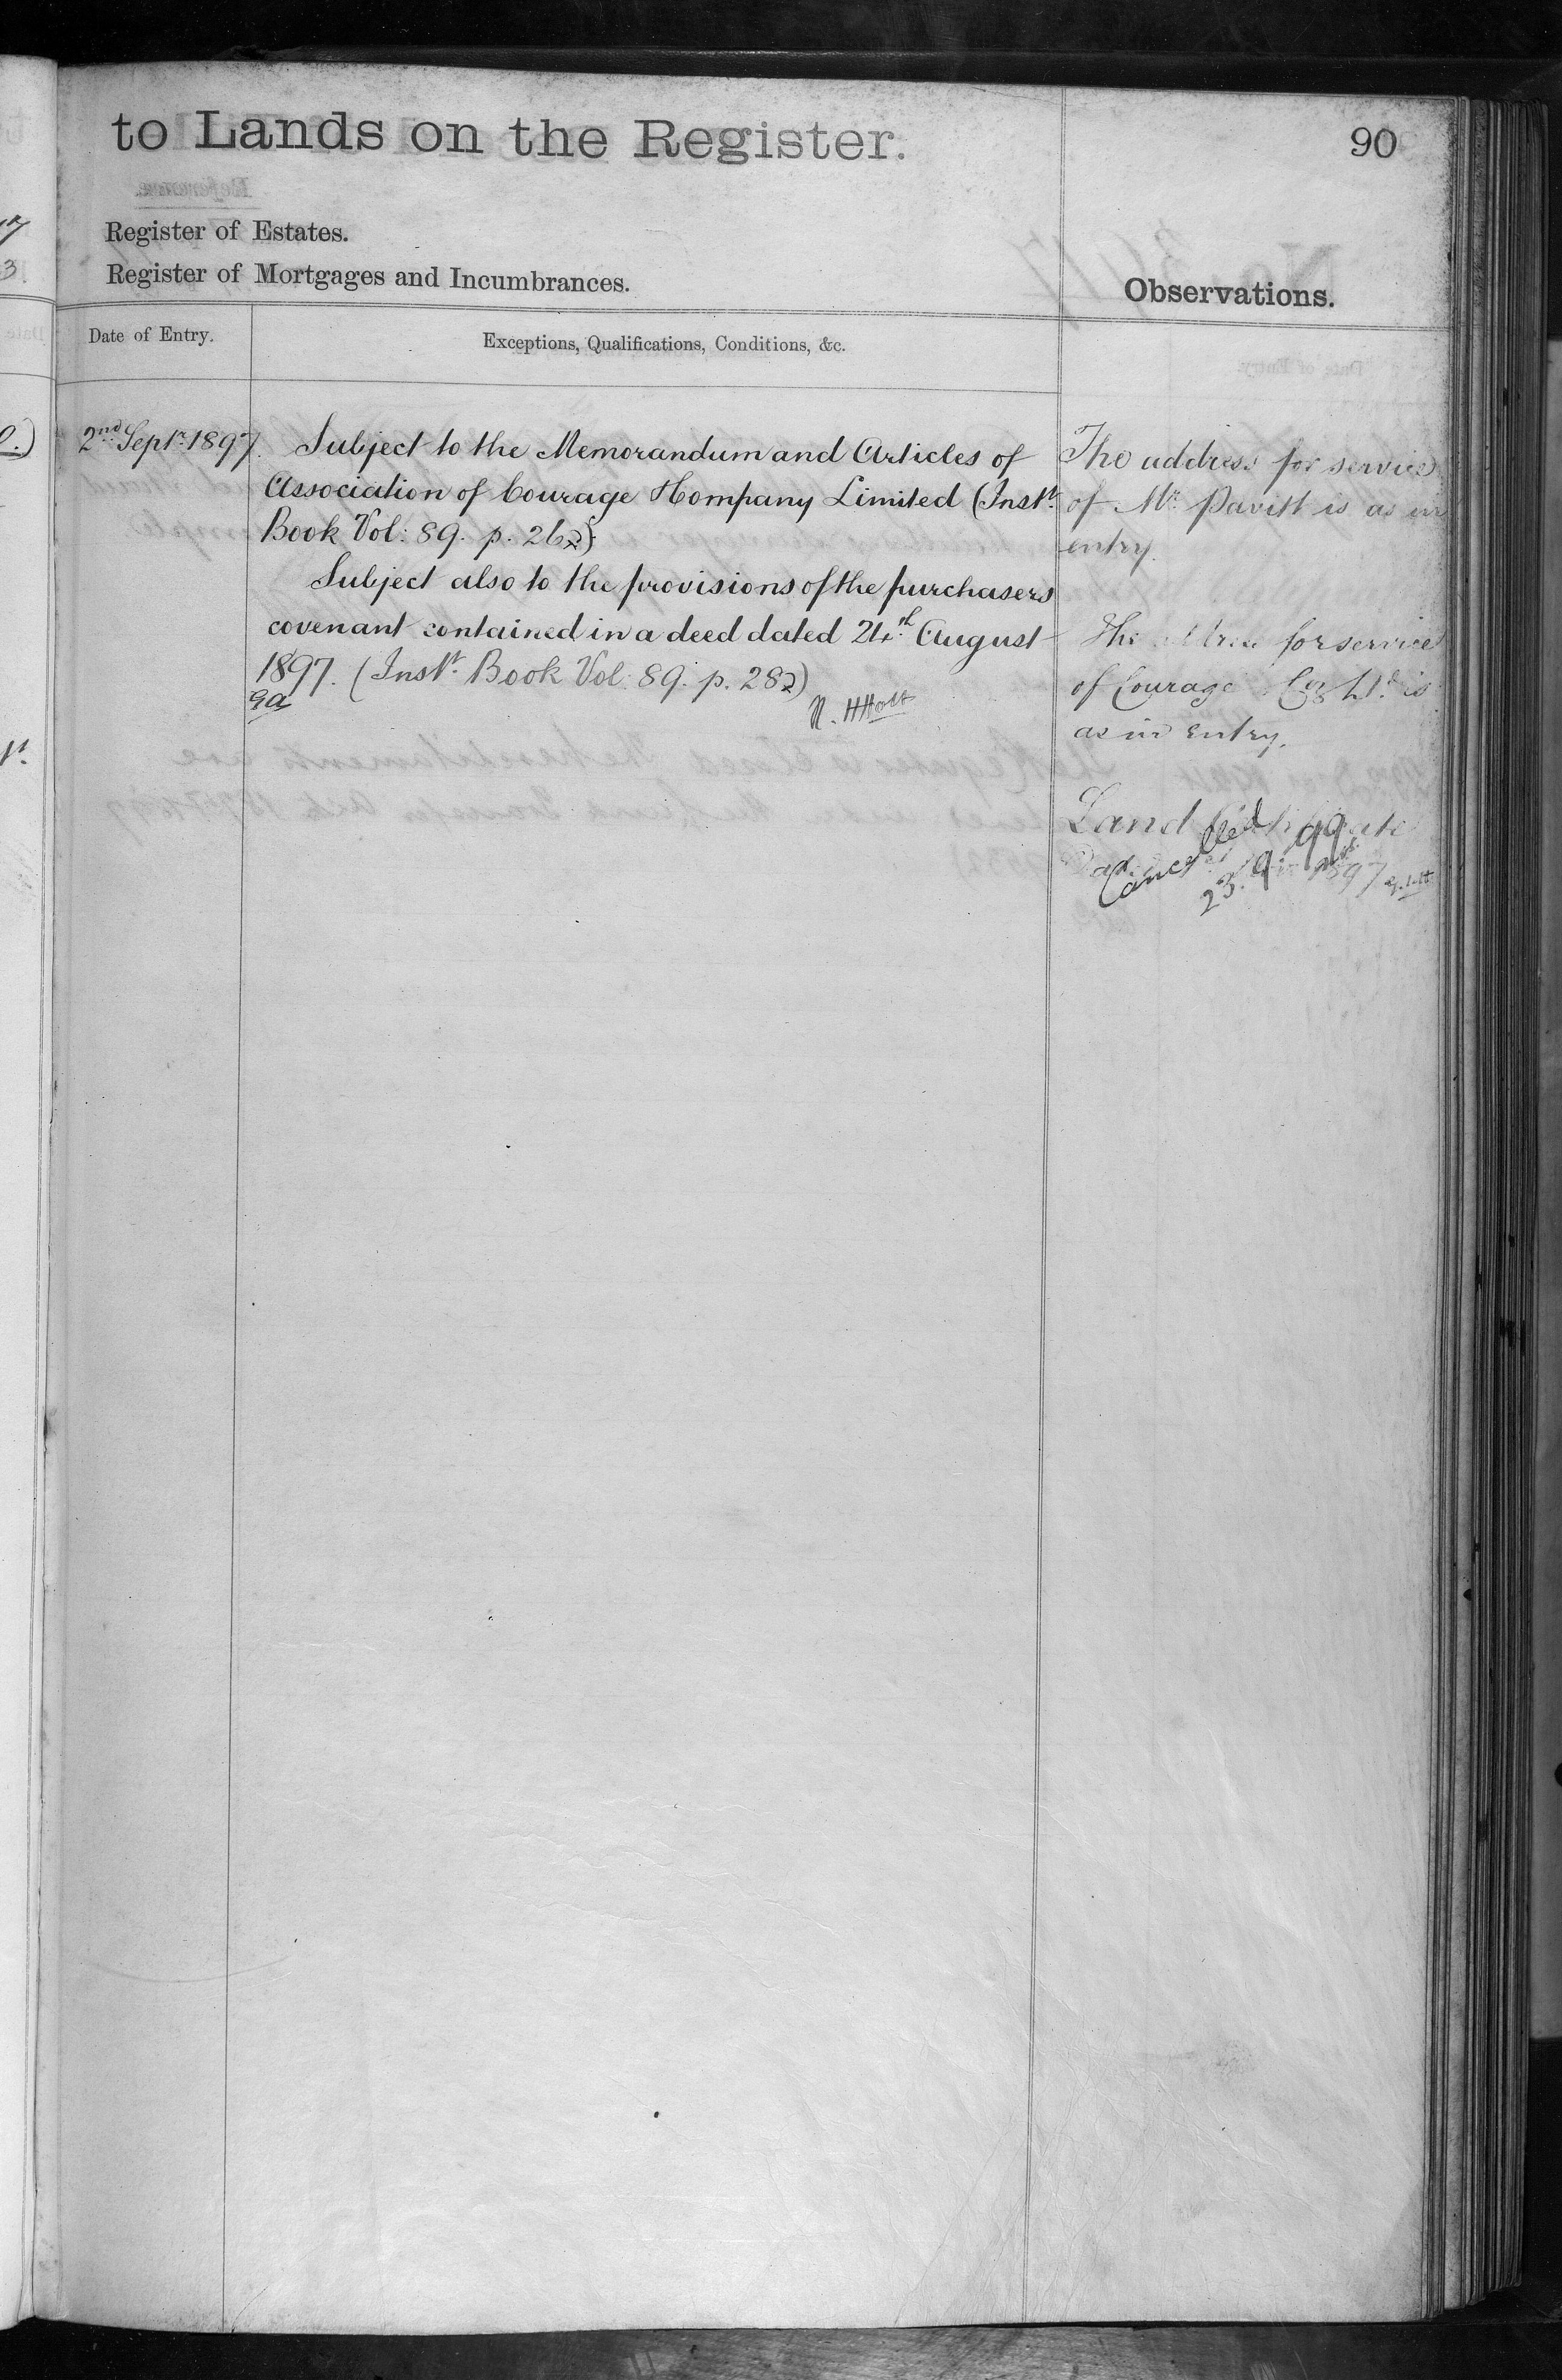 to Lands on the Register.
90
Register of Estates.
Register of Mortgages and Incumbrances.
Observations.
Date of Entry.
Exceptions, Qualifications, Conditions, &c.
2nd Septr. 1897.
Subject to the Memorandum and Articles of
Association of Courage & Company Limited (Instt.
Book Vol: 89. p. 262).
Subject also to the provisions of the purchasers
covenant contained in a deed dated 24th August
1897. (Instt. Book Vol: 89. p. 282)
N. H Holt
The address for service
of Mr. Pavitt is as in
entry.
The address for service
of Courage & Co Ld. is
as in entry.
Land Certificate
Cancelled
23.9.99
1897